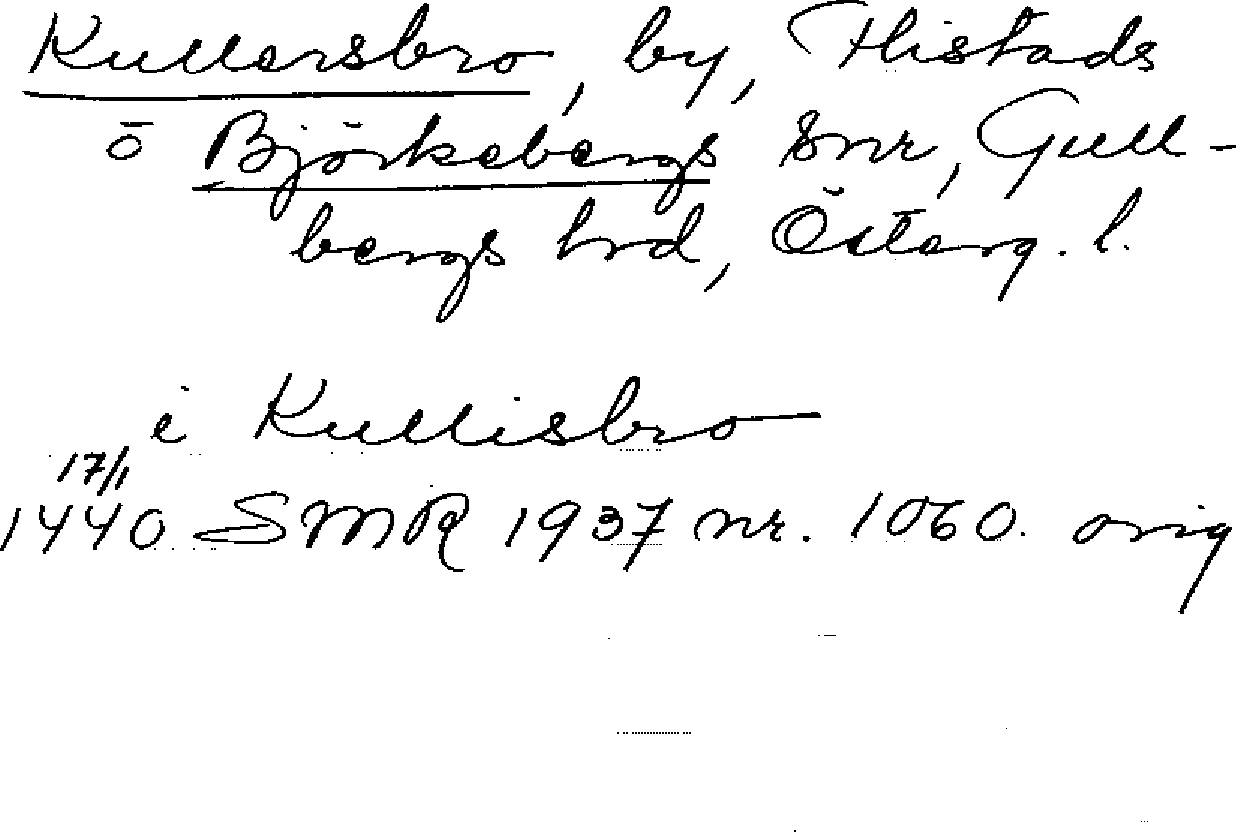 Kullersbro, by, Flistads
o Björkebergs snr, Gull-
bergs hrd, Österg. l.
i Kullisbro
17/1
1440 SMR 1937 nr. 1060. orig